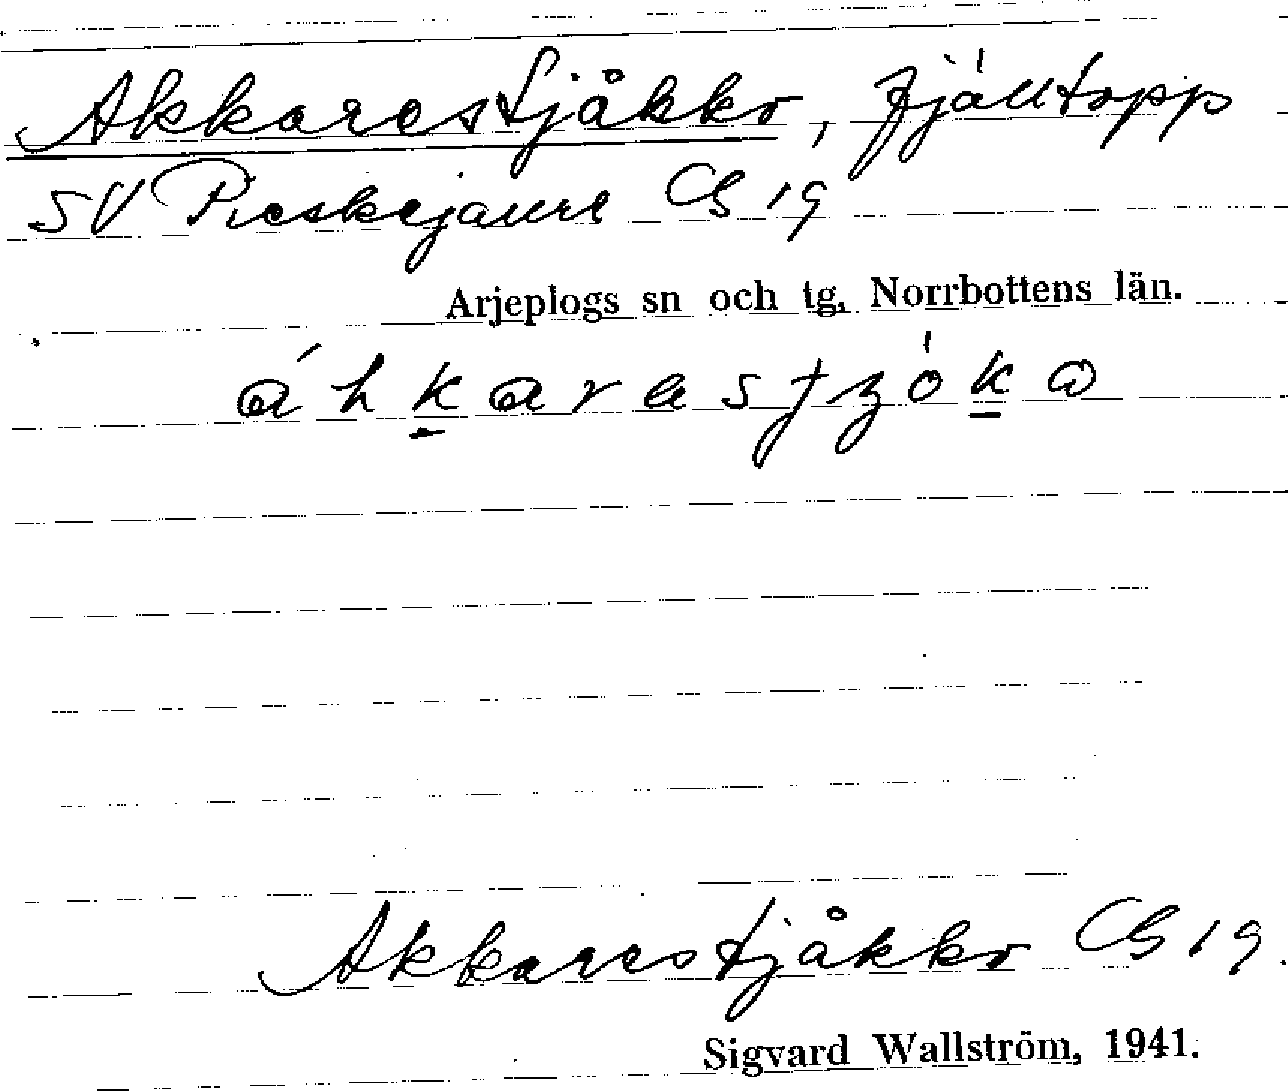 Akkarestjåkko, fjälltopp
SV Pieskejaure GB 19
Arjeplogs sn och tg, Norrbottens län.
áhkarastȷʒók̲o
Akkarestjåkko GB 19.
Sigvard Wallström, 1941.